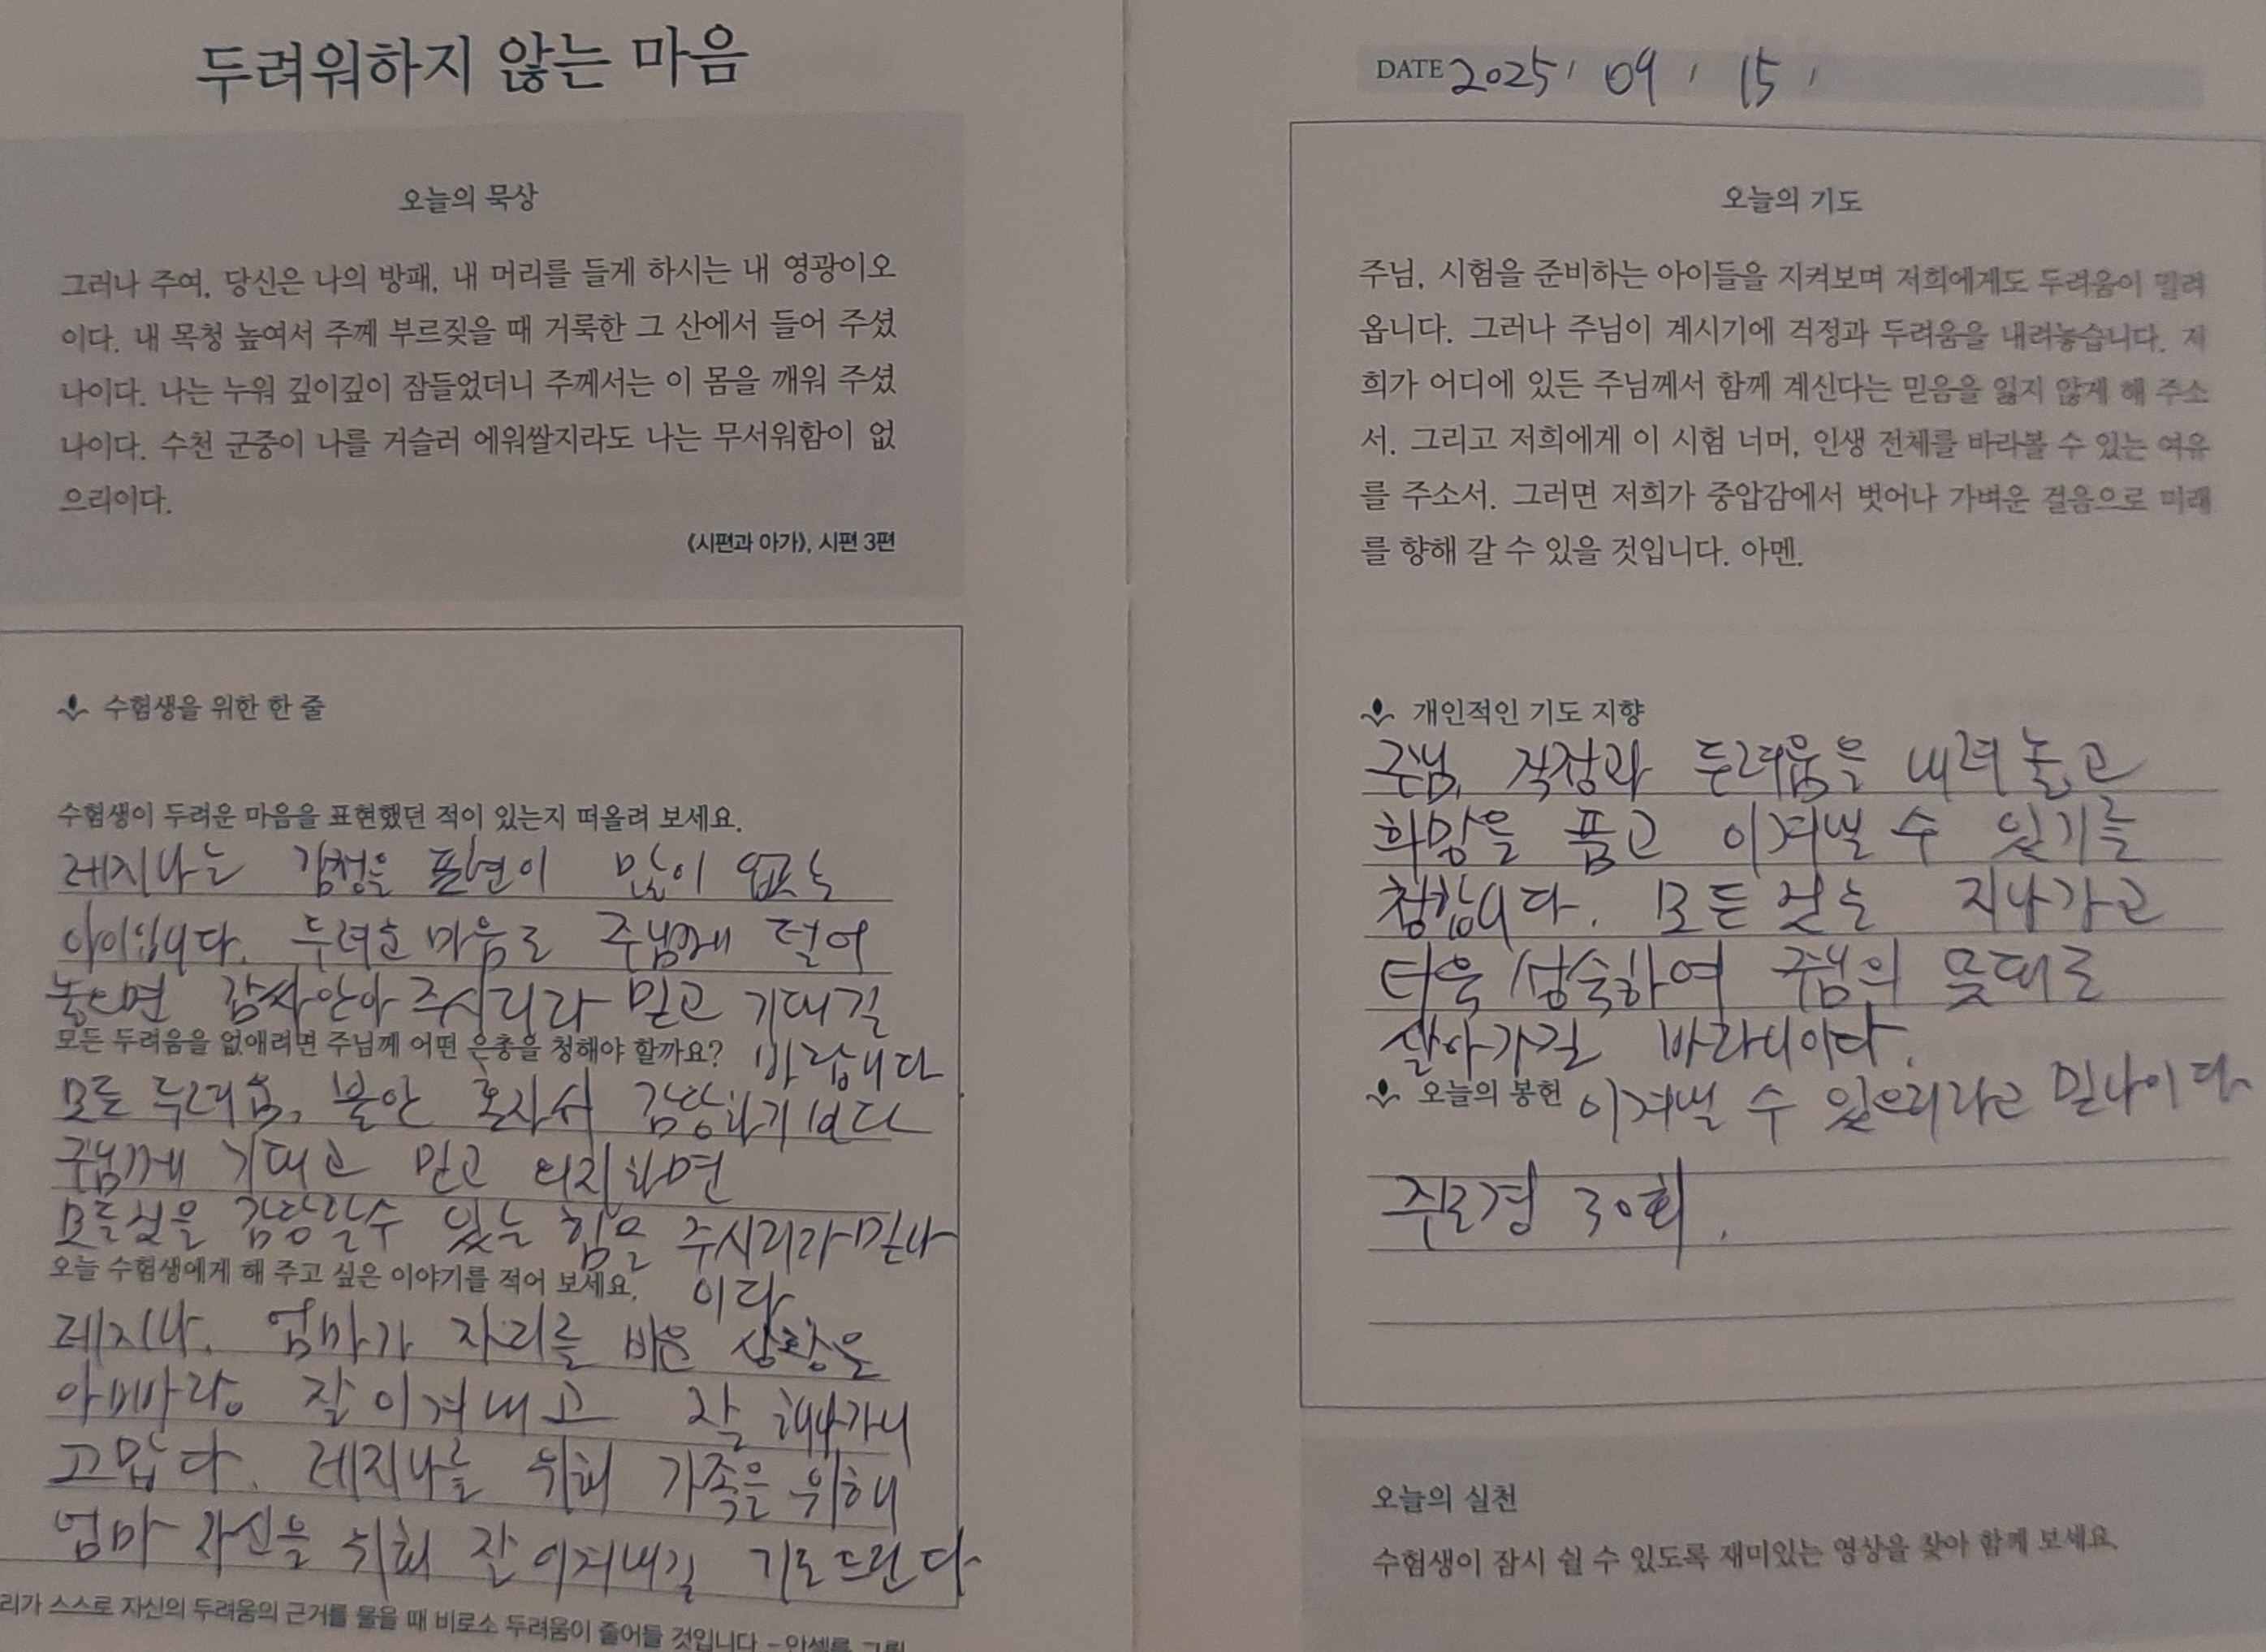 두려워하지 않는 마음
오늘의 묵상
그러나 주여, 당신은 나의 방패, 내 머리를 들게 하시는 내 영광이오
이다. 내 목청 높여서 주께 부르짖을 때 거룩한 그 산에서 들어 주셨
나이다. 나는 누워 깊이깊이 잠들었더니 주께서는 이 몸을 깨워 주셨
나이다. 수천 군중이 나를 거슬러 에워쌀지라도 나는 무서워함이 없
으리이다.
《시편과 아가》, 시편 3편
수험생을 위한 한 줄
수험생이 두려운 마음을 표현했던 적이 있는지 떠올려 보세요.
레지나는 감정을 표현이 많이 없는
아이입니다. 두려운 마음도 주님께 털어
놓으면 감싸안아 주시리라 믿고 기대길
바랍니다
모든 두려움을 없애려면 주님께 어떤 은총을 청해야 할까요?
모든 두려움, 불안 혼자서 감당하기보다
주님께 기대고 믿고 의지하면
모든것을 감당할수 있는 힘을 주시리라 믿나
이다
오늘 수험생에게 해 주고 싶은 이야기를 적어 보세요.
레지나. 엄마가 자리를 비운 상황을
아빠랑 잘 이겨내고 잘 해나가니
고맙다. 레지나를 위해 가족을 위해
엄마 자신을 위해 잘 이겨내길 기도드린다
리가 스스로 자신의 두려움의 근거를 물을 때 비로소 두려움이 줄어들 것입니다. – 안셀름 그륀
DATE 2025 / 09 / 15 /
오늘의 기도
주님, 시험을 준비하는 아이들을 지켜보며 저희에게도 두려움이 밀려
옵니다. 그러나 주님이 계시기에 걱정과 두려움을 내려놓습니다. 저
희가 어디에 있든 주님께서 함께 계신다는 믿음을 잃지 않게 해 주소
서. 그리고 저희에게 이 시험 너머, 인생 전체를 바라볼 수 있는 여유
를 주소서. 그러면 저희가 중압감에서 벗어나 가벼운 걸음으로 미래
를 향해 갈 수 있을 것입니다. 아멘.
개인적인 기도 지향
주님, 걱정과 두려움을 내려놓고
희망을 품고 이겨낼 수 있기를
청합니다. 모든것은 지나가고
더욱 성숙하여 주님의 뜻대로
살아가길 바라나이다.
이겨낼 수 있으리라고 믿나이다
오늘의 봉헌
화살기도 30회.
오늘의 실천
수험생이 잠시 쉴 수 있도록 재미있는 영상을 찾아 함께 보세요.